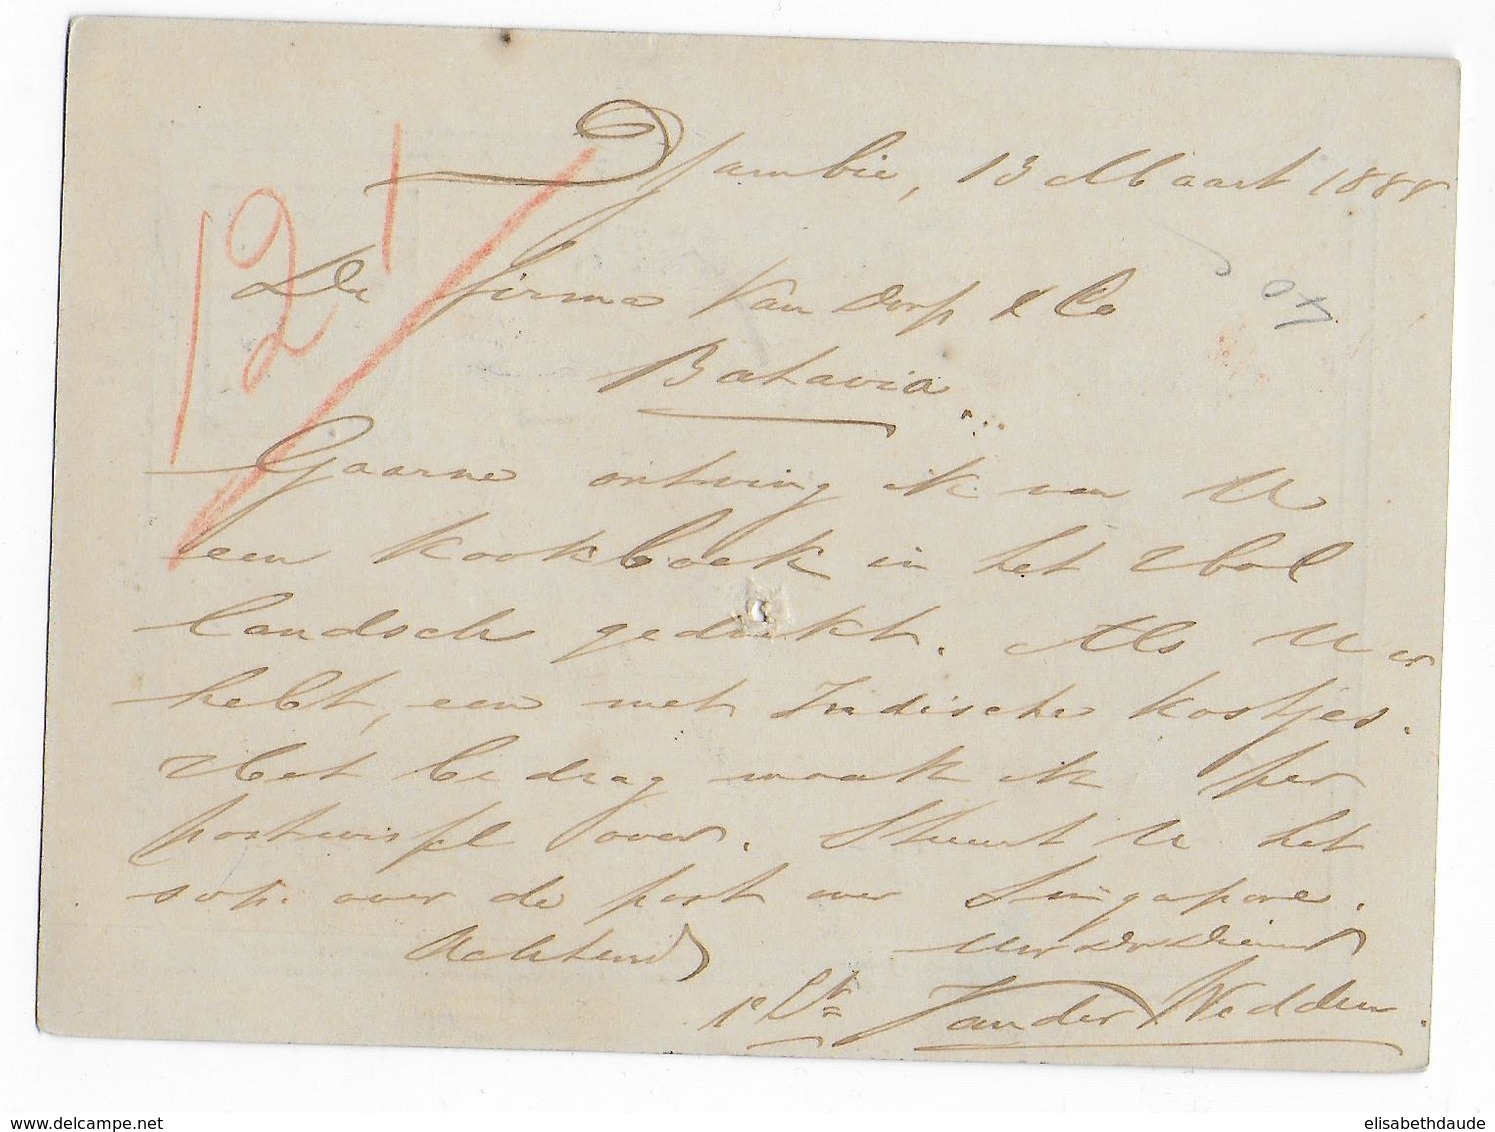 Djambie, 13 Maart 1888
12 1
De firma Van Dorp & Co
Batavia.
Gaarne ontving ik van U
een kookboek in het Hol
landsch gedrukt. Als U er
hebt, een met Indische kostjes.
Het bedrag maak ik per
postwissel over. Stuurt U het
s.v.p. over de post over Singapore.
Achtend
Uw Dw Dienaar
1e Lt Van der Wedden
www.delcampe.net
elisabethdaude